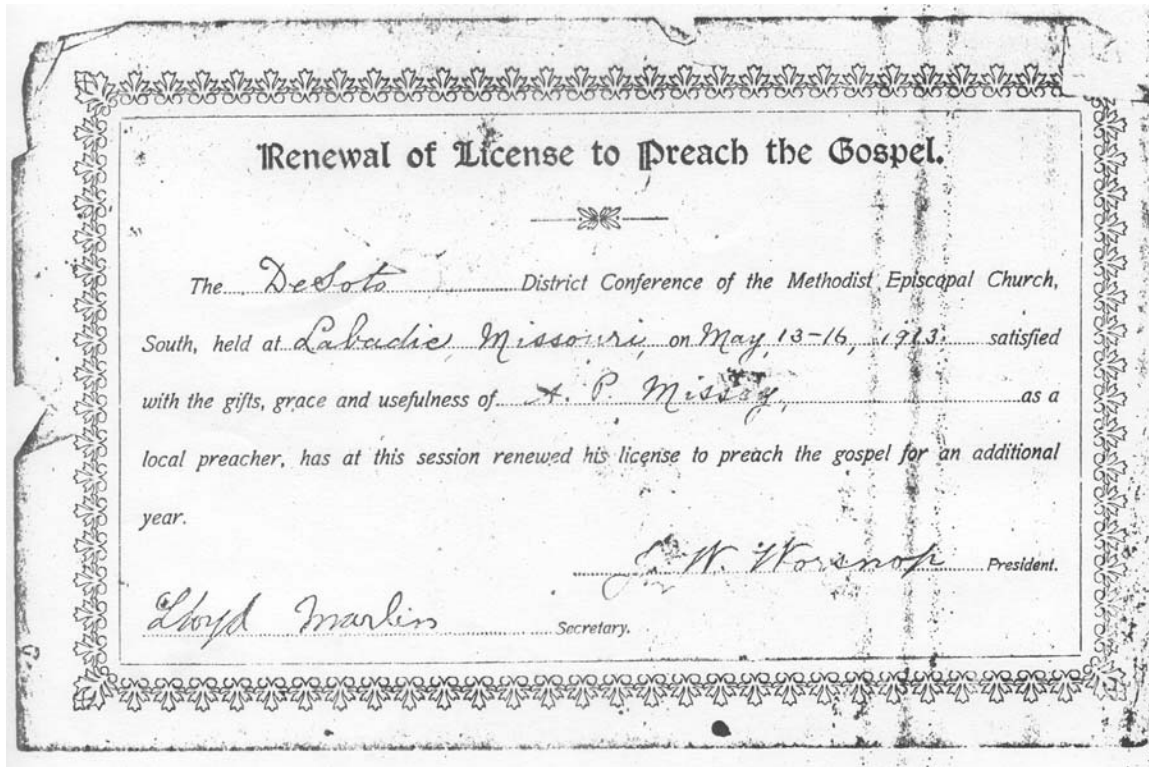 Renewal of License to Preach the Gospel.
The DeSoto District Conference of the Methodist Episcopal Church,
South, held at Labadie, Missouri, on May, 13-16, 1913. satisfied
with the gifts, grace and usefulness of A. P. Missey, as a
local preacher, has at this session renewed his license to preach the gospel for an additional
year.
W. Worsnop President.
Lloyd Marlin Secretary.